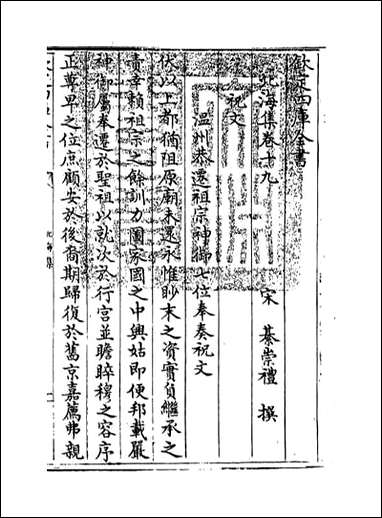 欽定四庫全書
北海集卷十九
宋 綦崇禮 撰
祝文
温州恭遷祖宗神御七位奉奏祝文
伏以上都猶阻原廟未還永惟眇末之資實負繼承之
責幸賴祖宗之餘訓力圖家國之中興姑即便邦載嚴
神御屬奉遷於聖祖以就次於行宫並瞻睟穆之容序
正尊卑之位庶顧安於後裔期歸復於舊京嘉薦弗親